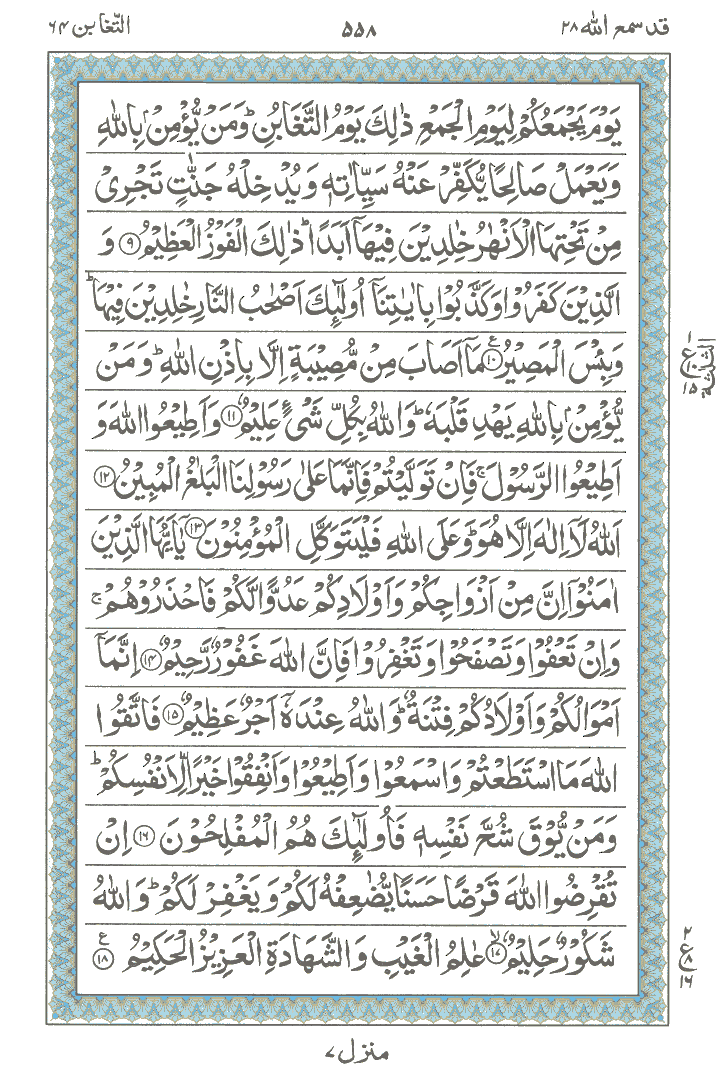 قد سمع الله ۲۸
۵۵۸
التّغابن ۶۴
يَوْمَ يَجْمَعُكُمْ لِيَوْمِ الْجَمْعِ ذٰلِكَ يَوْمُ التَّغَابُنِ ؕ وَمَنْ يُّؤْمِنْۢ بِاللّٰهِ
وَيَعْمَلْ صَالِحًا يُّكَفِّرْ عَنْهُ سَيِّاٰتِهٖ وَيُدْخِلْهُ جَنّٰتٍ تَجْرِىْ
مِنْ تَحْتِهَا الْاَنْهٰرُ خٰلِدِيْنَ فِيْهَاۤ اَبَدًا ؕ ذٰلِكَ الْفَوْزُ الْعَظِيْمُ ۹ وَ
الَّذِيْنَ كَفَرُوْا وَكَذَّبُوْا بِاٰيٰتِنَاۤ اُولٰٓئِكَ اَصْحٰبُ النَّارِ خٰلِدِيْنَ فِيْهَا ؕ
وَبِئْسَ الْمَصِيْرُ ۱۰ ع مَاۤ اَصَابَ مِنْ مُّصِيْبَةٍ اِلَّا بِاِذْنِ اللّٰهِ ؕ وَمَنْ
يُّؤْمِنْۢ بِاللّٰهِ يَهْدِ قَلْبَهٗ ؕ وَاللّٰهُ بِكُلِّ شَىْءٍ عَلِيْمٌ ۱۱ وَاَطِيْعُوا اللّٰهَ وَ
اَطِيْعُوا الرَّسُوْلَ ۚ فَاِنْ تَوَلَّيْتُمْ فَاِنَّمَا عَلٰى رَسُوْلِنَا الْبَلٰغُ الْمُبِيْنُ ۱۲
اَللّٰهُ لَاۤ اِلٰهَ اِلَّا هُوَ ؕ وَعَلَى اللّٰهِ فَلْيَتَوَكَّلِ الْمُؤْمِنُوْنَ ۱۳ يٰۤاَيُّهَا الَّذِيْنَ
اٰمَنُوْۤا اِنَّ مِنْ اَزْوَاجِكُمْ وَاَوْلَادِكُمْ عَدُوًّا لَّكُمْ فَاحْذَرُوْهُمْ ۚ
وَاِنْ تَعْفُوْا وَتَصْفَحُوْا وَتَغْفِرُوْا فَاِنَّ اللّٰهَ غَفُوْرٌ رَّحِيْمٌ ۱۴ اِنَّمَاۤ
اَمْوَالُكُمْ وَاَوْلَادُكُمْ فِتْنَةٌ ؕ وَاللّٰهُ عِنْدَهٗۤ اَجْرٌ عَظِيْمٌ ۱۵ فَاتَّقُوا
اللّٰهَ مَا اسْتَطَعْتُمْ وَاسْمَعُوْا وَاَطِيْعُوْا وَاَنْفِقُوْا خَيْرًا لِّاَنْفُسِكُمْ ؕ
وَمَنْ يُّوْقَ شُحَّ نَفْسِهٖ فَاُولٰٓئِكَ هُمُ الْمُفْلِحُوْنَ ۱۶ اِنْ
تُقْرِضُوا اللّٰهَ قَرْضًا حَسَنًا يُّضٰعِفْهُ لَكُمْ وَيَغْفِرْ لَكُمْ ؕ وَاللّٰهُ
شَكُوْرٌ حَلِيْمٌ ۙ ۱۷ عٰلِمُ الْغَيْبِ وَالشَّهَادَةِ الْعَزِيْزُ الْحَكِيْمُ ۱۸ ع
۱
ع
۱۰
۱۵
الثلثة
۲
ع
۸
۱۶
منزل ۷